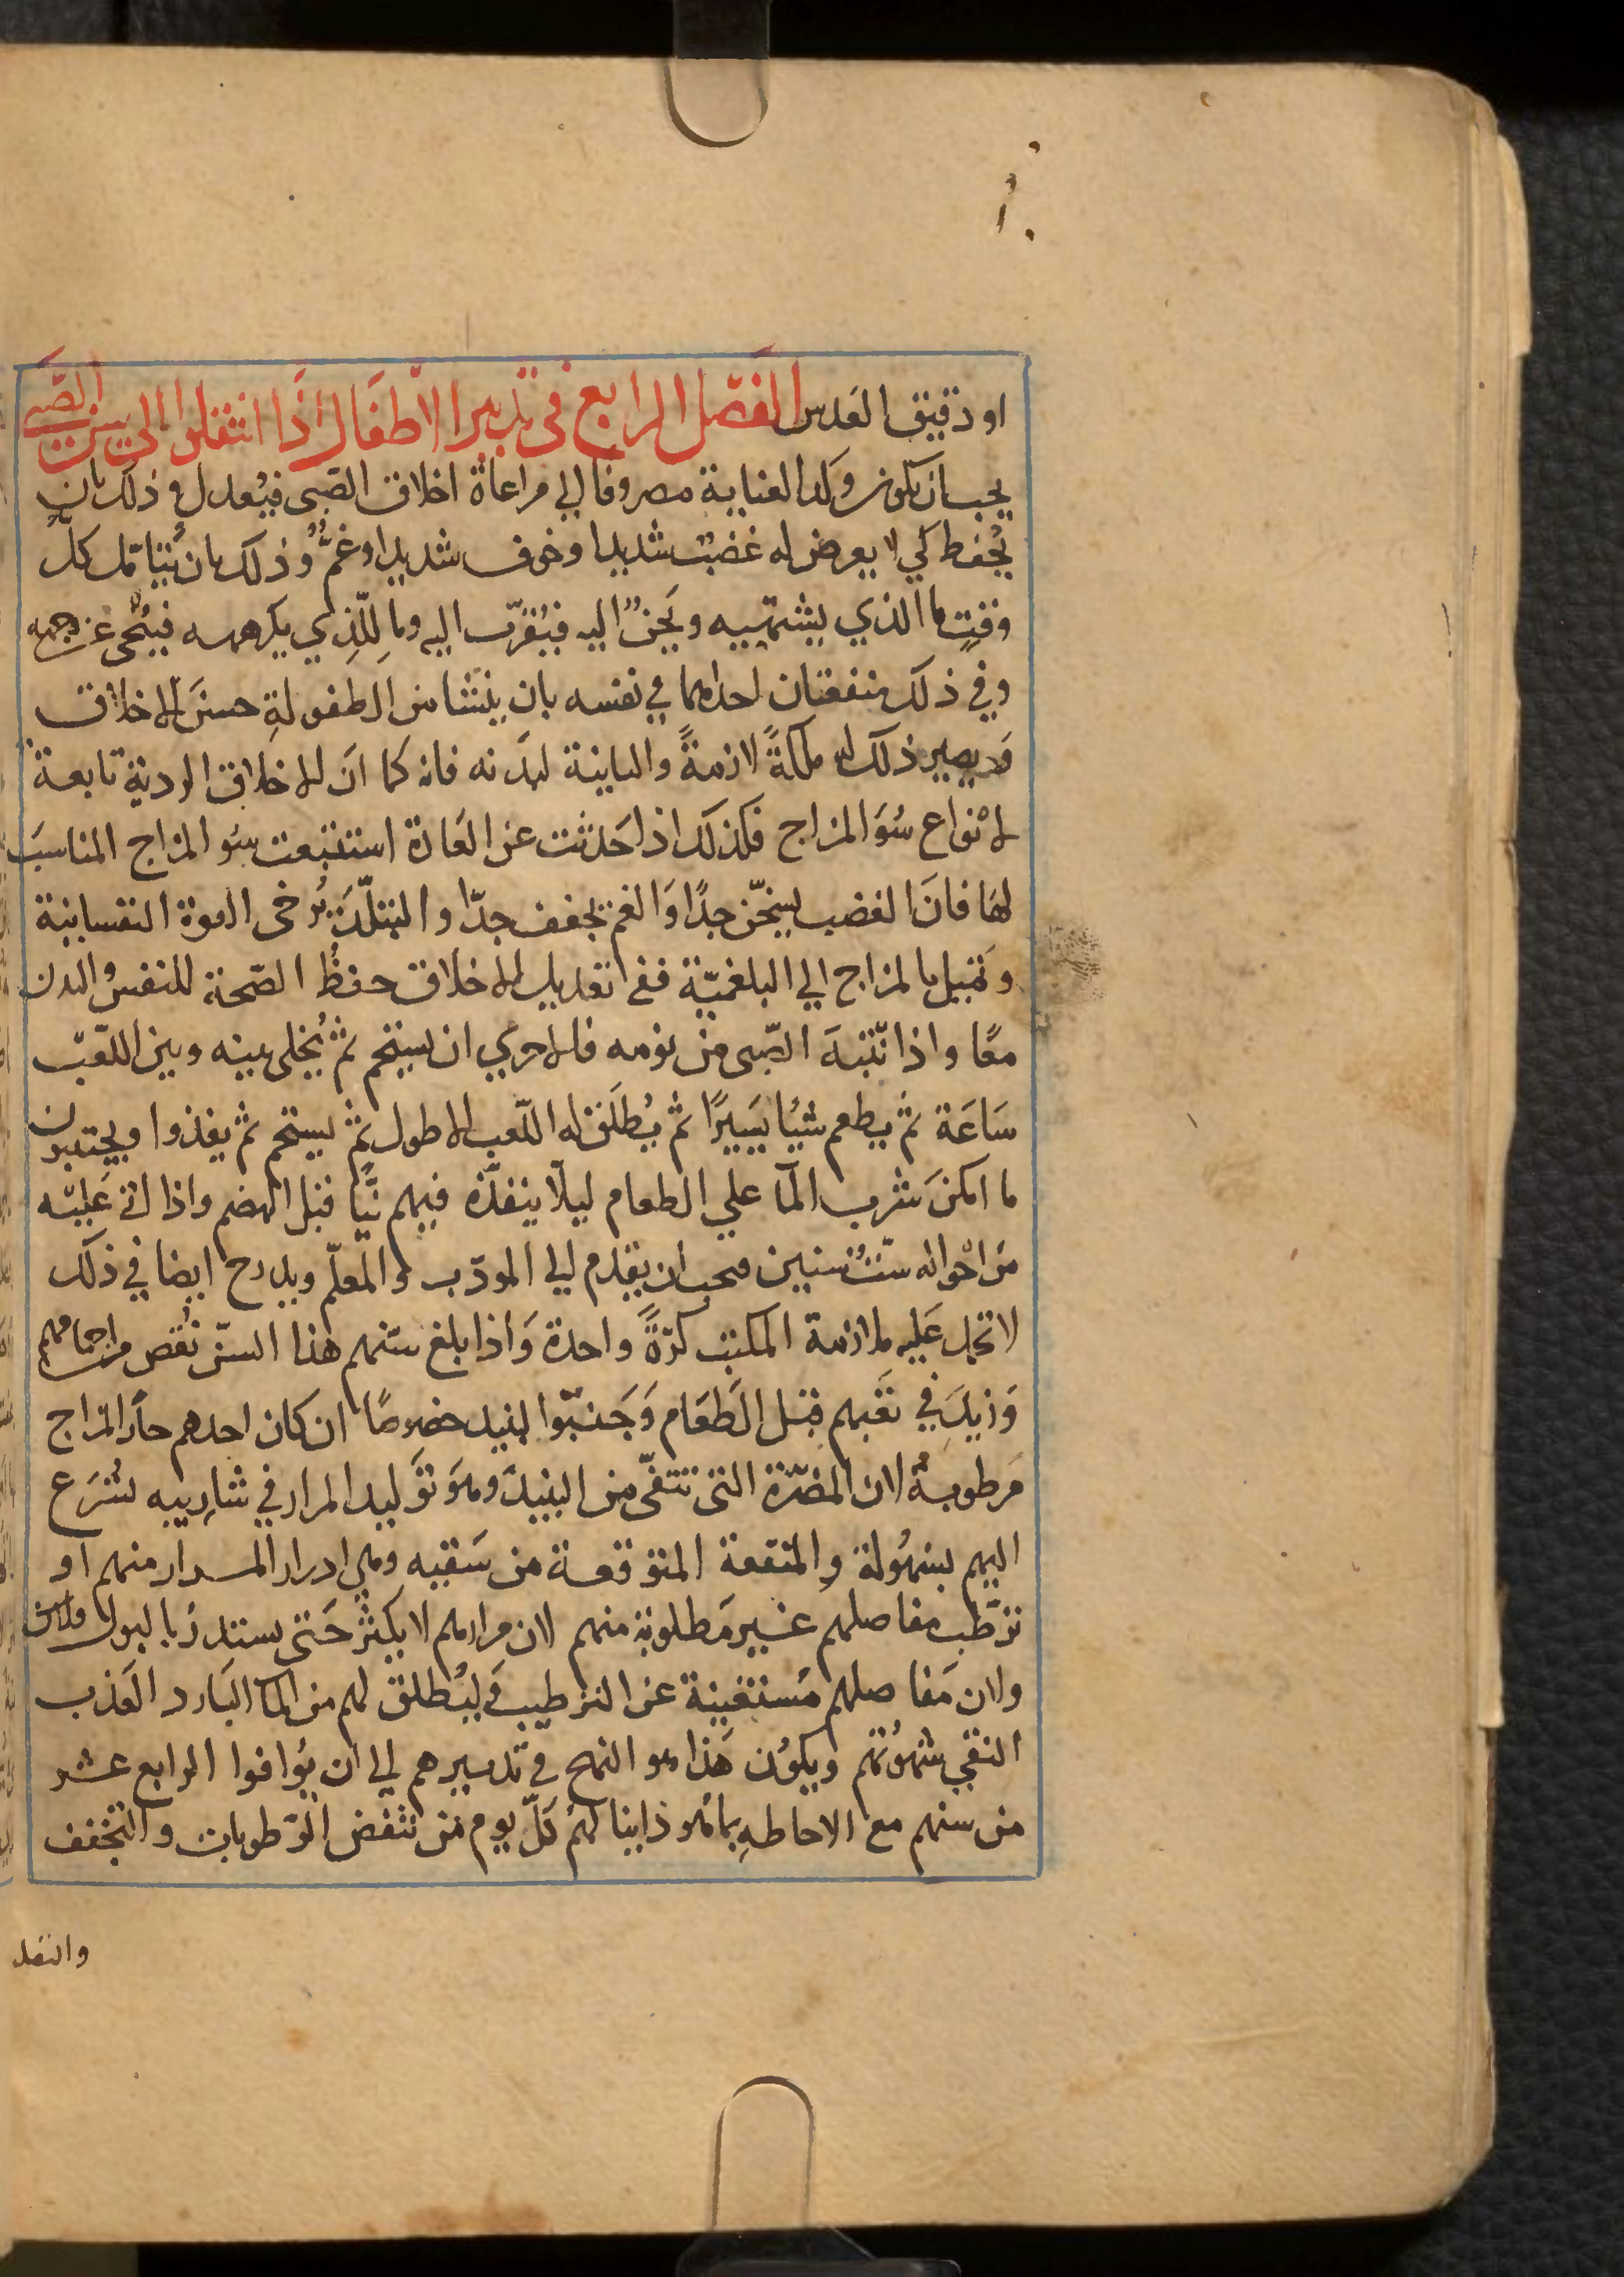 او دقيق العدس الفصل الرابع في تدبير الاطفال اذا انتقلوا الي سن الصبي
يجب ان يكون وكد العناية مصروفا الي مراعاة اخلاق الصبي فيعدل و ذلك بان
يحفظ كي لا يعرض له غضب شديد او خوف شديد او غم و ذلك بان يتامل كل
وقت ما الذي يشتهيه و يحن اليه فيقرب اليه وما للذي يكرهه فينحي عن وجهه
وفي ذلك منفعتان احداهما في نفسه بان ينشا من الطفولة حسن الاخلاق
و يصير ذلك له ملكة لازمة والثانية لبدنه فانه كما ان الاخلاق الردية تابعة
لانواع سو المزاج فكذلك اذا حدثت عن العادة استتبعت سو المزاج المناسب
لها فان الغضب يسخن جدا والغم يجفف جدا و التبلد يرخي القوة النفسانية
و تميل بالمزاج الي البلغمية ففي تعديل الاخلاق حفظ الصحة للنفس والبدن
معا و اذا انتبه الصبي من نومه فالاحري ان يستحم ثم يخلي بينه وبين اللعب
ساعة ثم يطعم شيا يسيرا ثم يطلق له اللعب الاطول ثم يستحم ثم يغذوا ويجتنبون
ما امكن شرب الما علي الطعام ليلا ينفذه فيهم نيا قبل الهضم واذا اتي عليه
من احواله ست سنين فيجب ان يقدم الي المودب والمعلم ويدرج ايضا في ذلك
لا تحمل عليه ملازمة المكتب كرة واحدة و اذا بلغ سنهم هذا السن نقص من اجمامهم
وزيد في تعبهم قبل الطعام وجنبوا النبيذ خصوصا ان كان احدهم حار المزاج
مرطوبة لان المضرة التي تتقي من النبيذ وهو توليد المرار في شاربيه تسرع
اليهم بسهولة والمنفعة المتوقعة من سقيه وهي ادرار المرار منهم او
ترطب مفاصلهم غير مطلوبة منهم لان مرارهم لا يكثر حتي يستدر بالبول ولان
ولان مفاصلهم مستغنية عن الترطيب وليطلق لهم من الما البارد العذب
النقي شهوتهم ويكون هذا هو النهج في تدبيرهم الي ان يوافوا الرابع عشر
من سنهم مع الاحاطه بما هو ذاينا لهم كل يوم من تنقض الرطوبات و التجفف